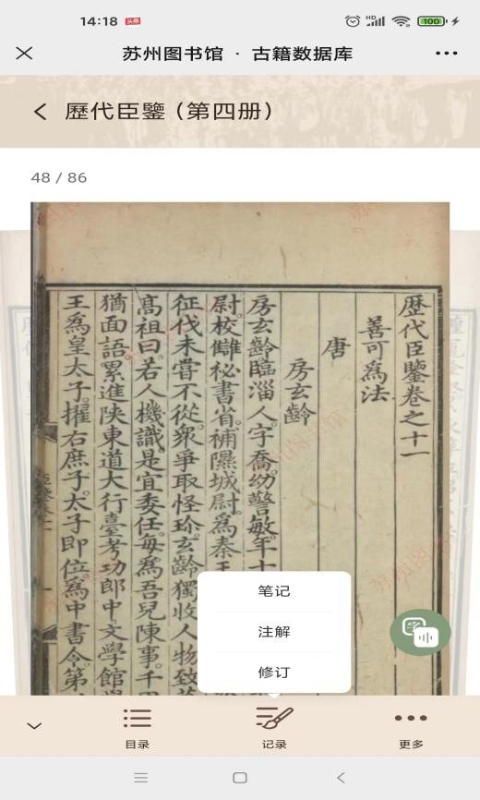 14:18
苏州图书馆 · 古籍数据库
歷代臣鑒（第四册）
48 / 86
歷代臣鑒卷之十一
善可為法
唐
房玄齡
房玄齡臨淄人字喬幼警敏年十
尉校讎秘書省補隰城尉爲秦王
征伐未嘗不從衆爭取怪珍玄齡獨收人物致
高祖曰若人機識是宜委任每爲吾兒陳事千
猶面語累進陝東道大行臺考功郎中文學館
王爲皇太子擢右庶子太子即位爲中書令第
笔记
注解
修订
目录
记录
更多